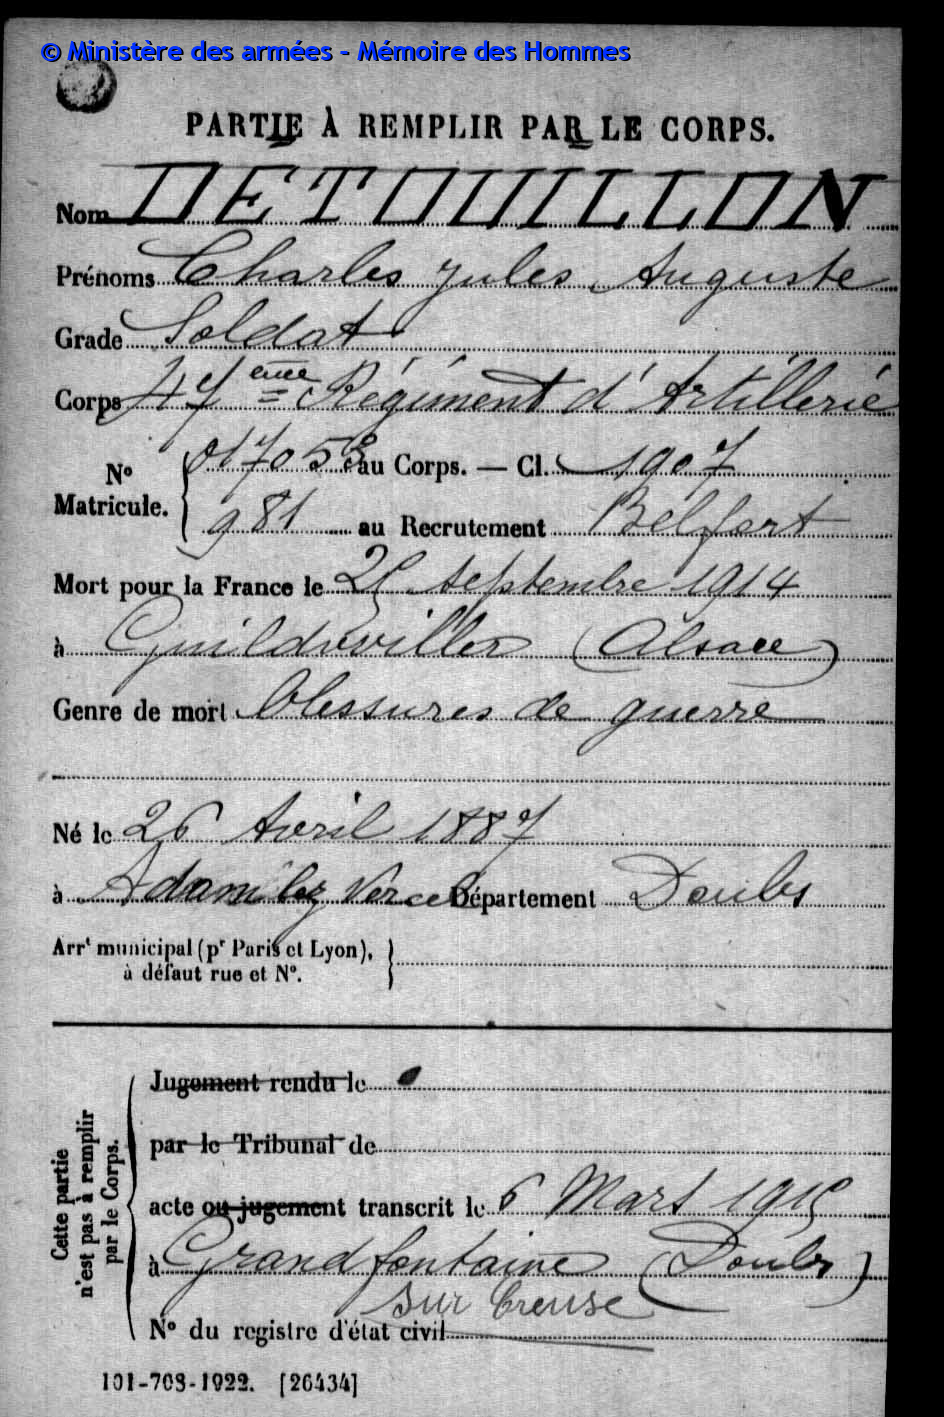 © Ministère des armées - Mémoire des Hommes
PARTIE À REMPLIR PAR LE CORPS.
Nom DÉTOUILLON
Prénoms Charles Jules Auguste
Grade Soldat
Corps 47 ème Régiment d'Artillerie
N° Matricule. { 017053 au Corps. — Cl. 1907
981 au Recrutement Belfort
Mort pour la France le 25 septembre 1914
à Guildwiller (Alsace)
Genre de mort blessures de guerre
Né le 26 Avril 1887
à Adam lez Vercel Département Doubs
Arrt municipal (pr Paris et Lyon),
à défaut rue et N°.
Cette partie n'est pas à remplir par le Corps.
Jugement rendu le
par le Tribunal de
acte ou jugement transcrit le 6 Mars 1915
à Grandfontaine (Doubs)
sur Creuse
N° du registre d'état civil
101-708-1922. [26434]